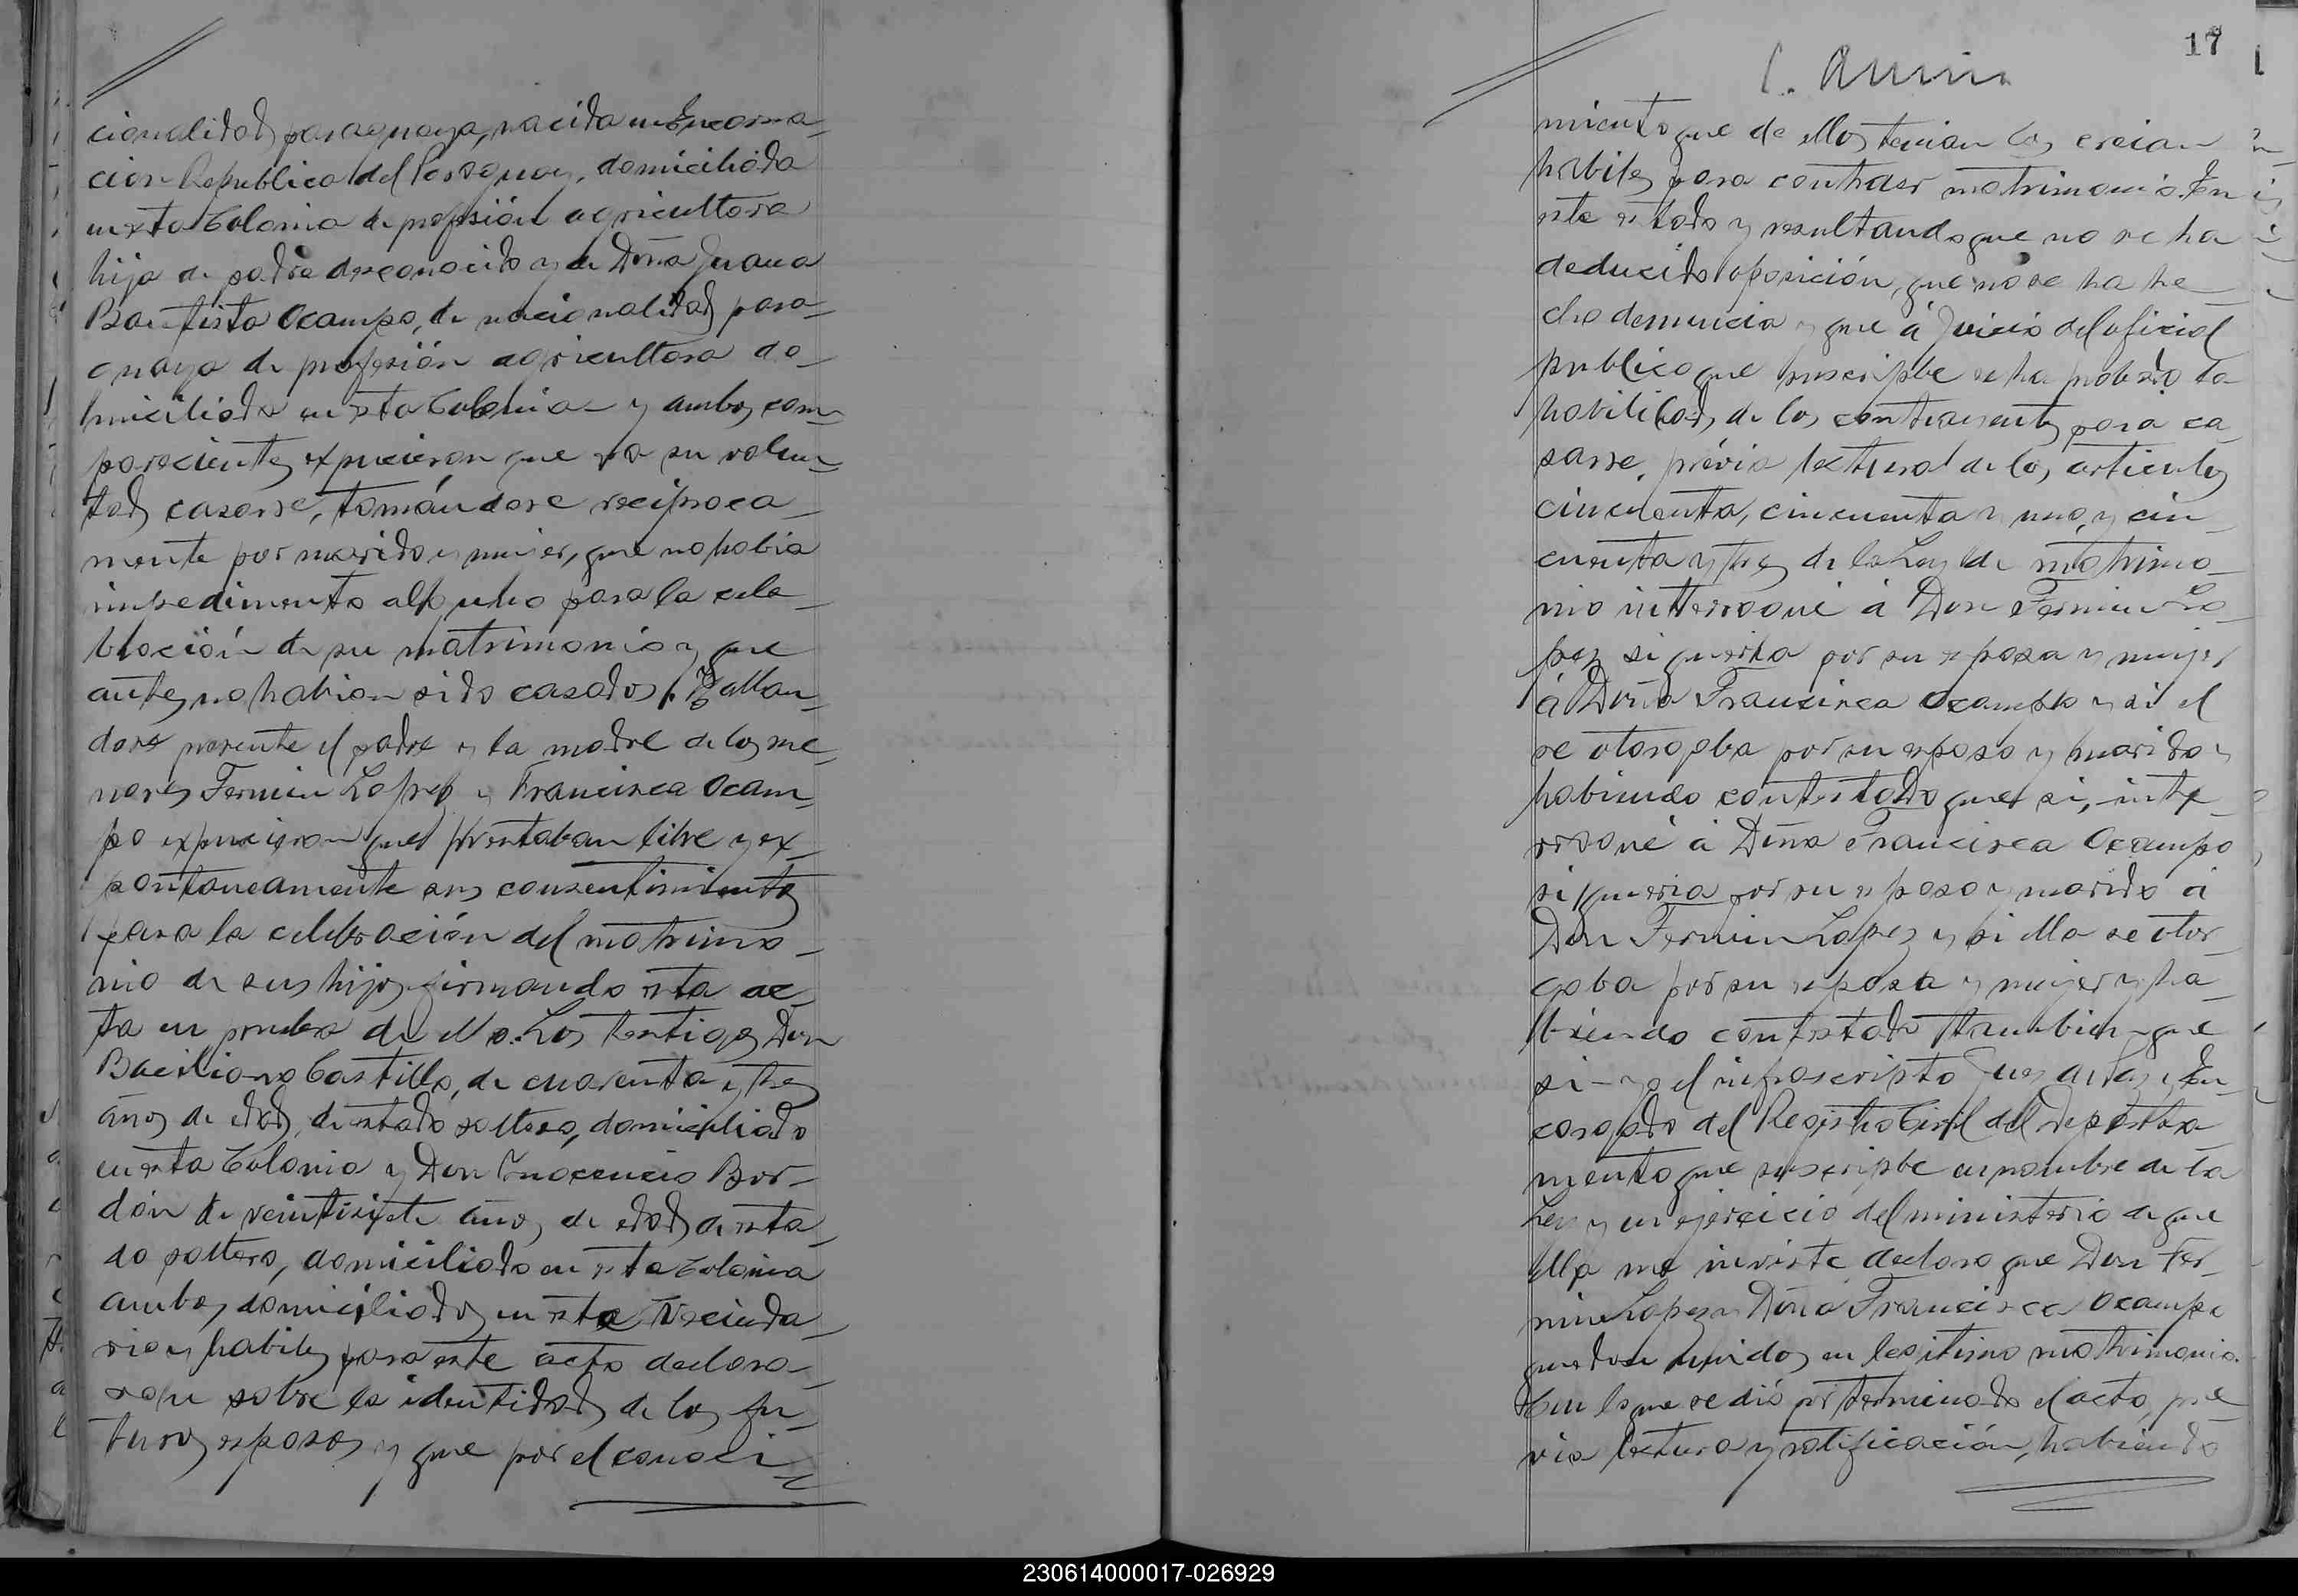 cionalidad paraguaya, nacida en Encarna-
cion Republica del Paraguay, domiciliada
en esta Colonia de profesión agricultora
hija de padre desconocido y de Doña Juana
Bautista Ocampo, de nacionalidad para-
guaya de profesión agricultora do-
miciliada en esta Colonia y ambos com-
parecientes expucieron que era su volun-
tad casarse, tomándose recíproca-
mente por marido y mujer, que no habia
impedimento alguno para la cele-
bración de su matrimonio y que
antes no habian sido casados. Hallan-
dose presente el padre y la madre de los me-
nores Fermin Lopez y Francisca Ocam-
po expucieron que prestaban libre y ex-
pontaneamente sus consentimientos
para la celebración del matrimo-
nio de sus hijos firmando esta ac-
ta en prueba de ello. Los testigos Don
Baciliano Castillo, de cuarenta y tres
años de edad, de estado soltero, domiciliado
en esta Colonia y Don Inocencio Bor-
dón de veintisiete años de edad de esta-
do soltero, domiciliado en esta Colonia
ambos domiciliados en este vecinda-
rio y habiles para este acto declara-
ron sobre la identidad de los fu-
turos esposos y que por el conoci-
17
miento que de ellos tenian los creian
habiles para contraer matrimonio. En
este estado y resultando que no se ha
deducido oposición, que no se ha he-
cho denuncia y que á juicio del oficial
publico que suscripbe se ha probado la
habilidad de los contrayentes para ca-
sarse, prévia lectura de los articulos
cincuenta, cincuenta y uno, y cin-
cuenta y tres de la Ley de matrimo-
nio interrogué á Don Fermin Lo-
pez si queria por su esposa y mujer
á Doña Francisca Ocampo y si el
se otorgaba por su esposo y marido y
habiendo contestado que si, inte-
rrogué á Doña Francisca Ocampo
si queria por su esposo y marido á
Don Fermin Lopez y si ella se otor-
gaba por su esposa y mujer y ha-
biendo contestado tambien que
si - yo el infrascripto Juez de Paz y En-
cargado del Registro Civil del Departa-
mento que suscripbe en nombre de la
Ley y en ejercicio del ministerio de que
ella me inviste declaro que Don Fer-
min Lopez y Doña Francisca Ocampo
quedan unidos en legitimo matrimonio.
Con lo que se dió por terminado el acto, pré-
via lectura y ratificación, habiendo
230614000017-026929